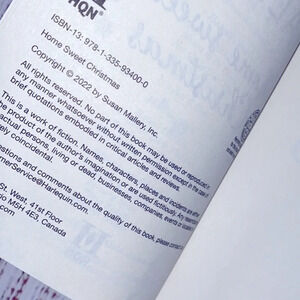 HQN™
ISBN-13: 978-1-335-93400-0
Home Sweet Christmas
Copyright © 2022 by Susan Mallery, Inc.
All rights reserved. No part of this book may be used or reproduced in
any manner whatsoever without written permission except in the case of
brief quotations embodied in critical articles and reviews.
This is a work of fiction. Names, characters, places and incidents are either
actual persons, living or dead, businesses, companies, events or
ely coincidental.
estions and comments about the quality of this book, please contact us
merservice@Harlequin.com.
St. West, 41st Floor
rio M5H 4E3, Canada